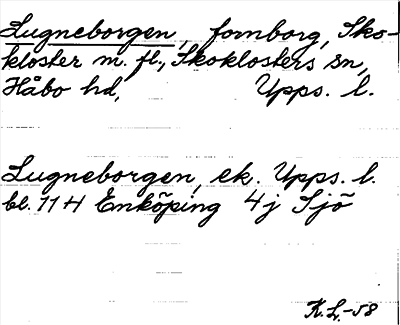 Lugneborgen, fornborg, Sko-
kloster m. fl., Skoklosters sn,
Håbo hd, Upps. l.
Lugneborgen, ek. Upps. l.
bl. 11 H Enköping 4j Sjö
K.L.-58